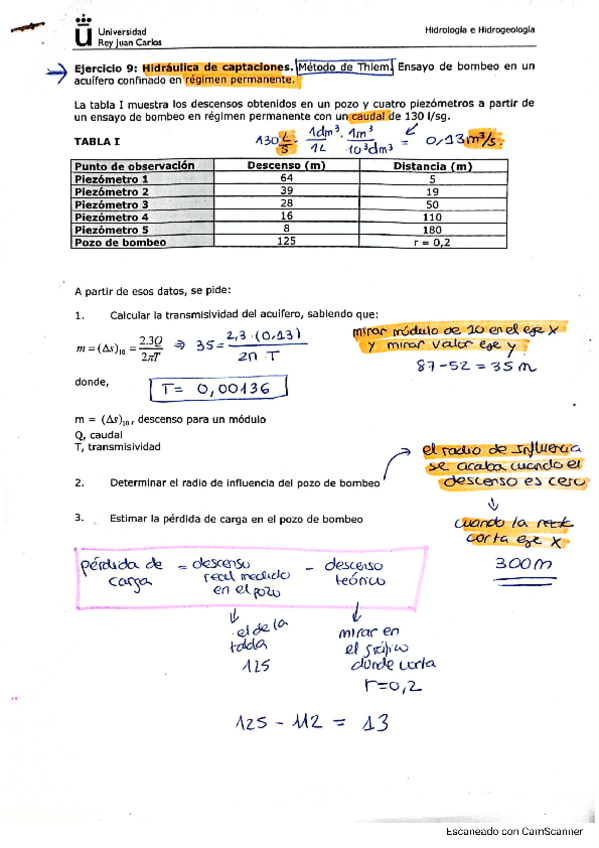 Universidad
Rey Juan Carlos
Hidrología e Hidrogeología
Ejercicio 9: Hidráulica de captaciones. Método de Thiem. Ensayo de bombeo en un
acuífero confinado en régimen permanente.
La tabla I muestra los descensos obtenidos en un pozo y cuatro piezómetros a partir de
un ensayo de bombeo en régimen permanente con un caudal de 130 l/sg.
TABLA I
130 L/S · 1dm³/1L · 1m³/10³dm³ = 0,13 m³/s.
Punto de observación Descenso (m) Distancia (m)
Piezómetro 1 64 5
Piezómetro 2 39 19
Piezómetro 3 28 50
Piezómetro 4 16 110
Piezómetro 5 8 180
Pozo de bombeo 125 r = 0,2
A partir de esos datos, se pide:
1. Calcular la transmisividad del acuífero, sabiendo que:
m = (Δs)₁₀ = 2.3Q/2πT ⇒ 35 = 2,3 · (0,13)/2π · T
mirar módulo de 10 en el eje x
y mirar valor eje y
87 - 52 = 35 m
donde,
T = 0,00136
m = (Δs)₁₀, descenso para un módulo
Q, caudal
T, transmisividad
2. Determinar el radio de influencia del pozo de bombeo
el radio de influencia
se acaba cuando el
descenso es cero
cuando la
corta eje x
300m
3. Estimar la pérdida de carga en el pozo de bombeo
pérdida de carga = descenso real medido en el pozo - descenso teórico
el de la
tabla
125
mirar en
el gráfico
donde corta
r=0,2
125 - 112 = 13
Escaneado con CamScanner